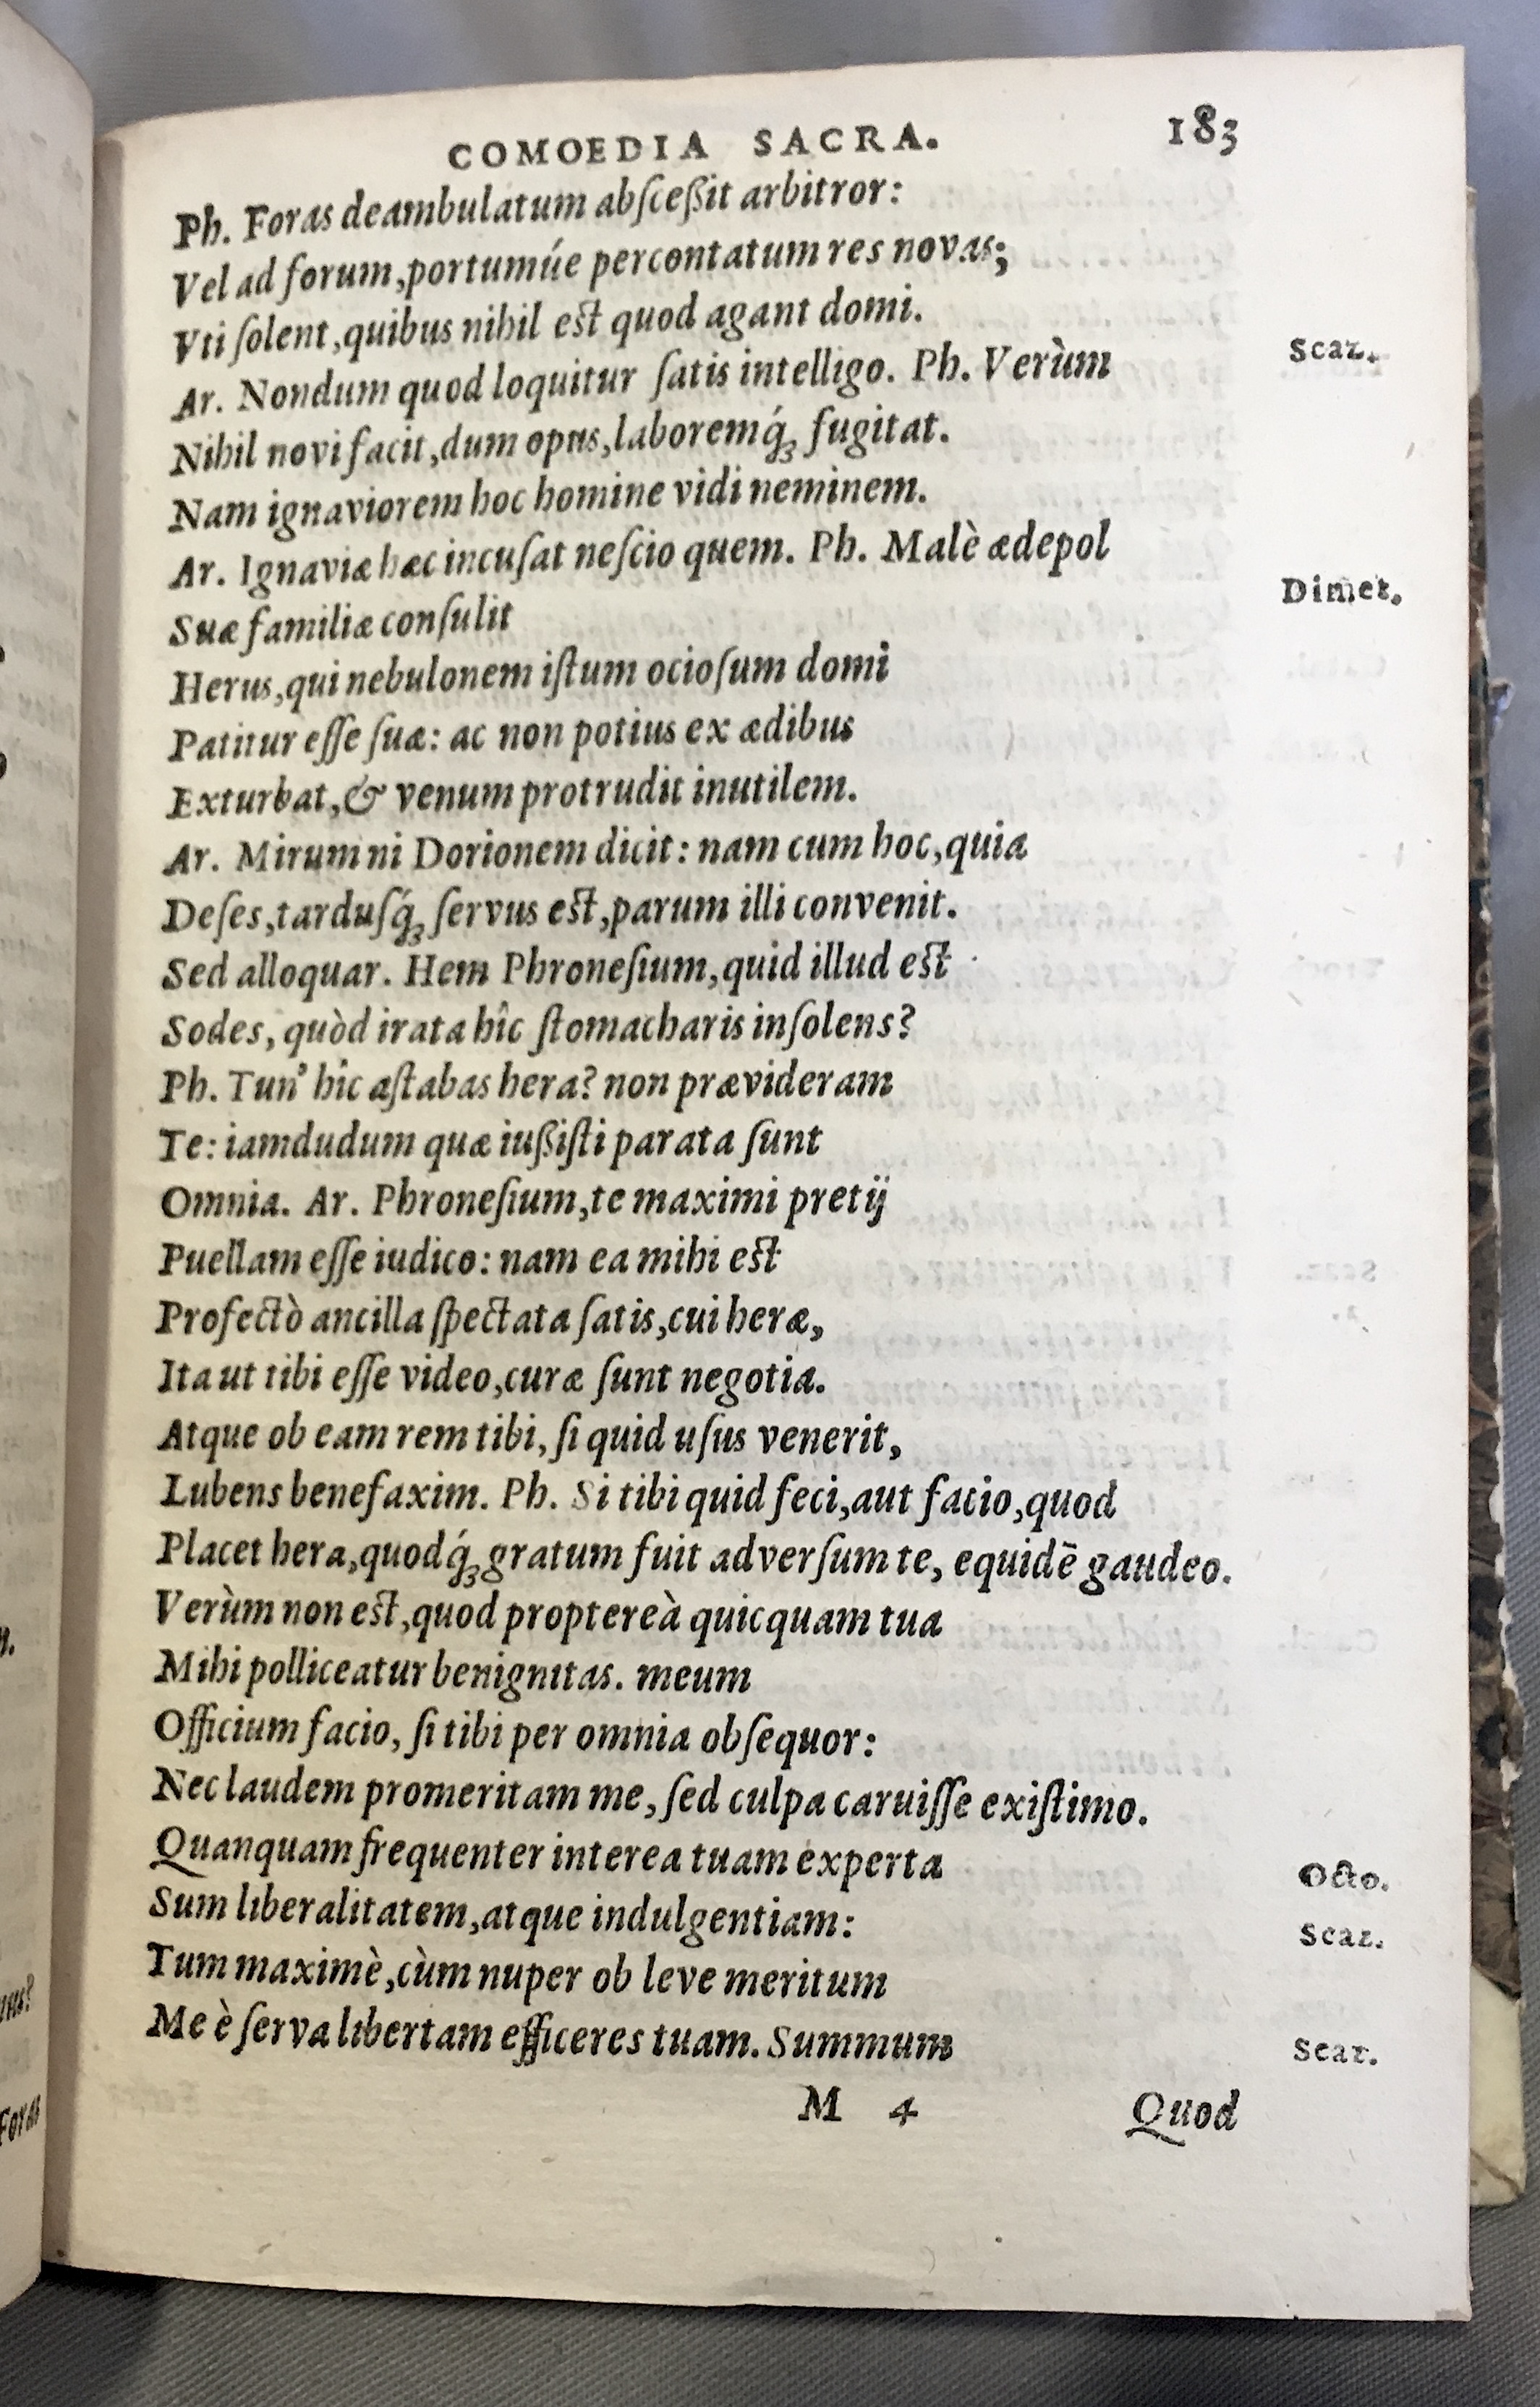 COMOEDIA SACRA. 183
Ph. Foras deambulatum abſceßit arbitror:
Vel ad forum, portumúe percontatum res novas;
Vti ſolent, quibus nihil est quod agant domi.
Ar. Nondum quod loquitur ſatis intelligo. Ph. Verùm Scaz.
Nihil novi facit, dum opus, laboremq́ꝫ fugitat.
Nam ignaviorem hoc homine vidi neminem.
Ar. Ignaviæ hæc incuſat neſcio quem. Ph. Malè ædepol
Suæ familiæ conſulit Dimet.
Herus, qui nebulonem iſtum ocioſum domi
Patitur eſſe ſuæ: ac non potius ex ædibus
Exturbat, & venum protrudit inutilem.
Ar. Mirum ni Dorionem dicit: nam cum hoc, quia
Deſes, tarduſq́ꝫ ſervus est, parum illi convenit.
Sed alloquar. Hem Phroneſium, quid illud est
Sodes, quòd irata hîc ſtomacharis inſolens?
Ph. Tun' hîc aſtabas hera? non prævideram
Te: iamdudum quæ iußiſti parata ſunt
Omnia. Ar. Phroneſium, te maximi pretij
Puellam eſſe iudico: nam ea mihi est
Profectò ancilla ſpectata ſatis, cui heræ,
Ita ut tibi eſſe video, curæ ſunt negotia.
Atque ob eam rem tibi, ſi quid uſus venerit,
Lubens benefaxim. Ph. Si tibi quid feci, aut facio, quod
Placet hera, quodq́ꝫ gratum fuit adverſum te, equidē gaudeo.
Verùm non est, quod proptereà quicquam tua
Mihi polliceatur benignitas. meum
Officium facio, ſi tibi per omnia obſequor:
Nec laudem promeritam me, ſed culpa caruiſſe exiſtimo.
Quanquam frequenter interea tuam experta Octo.
Sum liberalitatem, atque indulgentiam: Scaz.
Tum maximè, cùm nuper ob leve meritum
Me è ſerva libertam efficeres tuam. Summum Scaz.
M 4 Quod